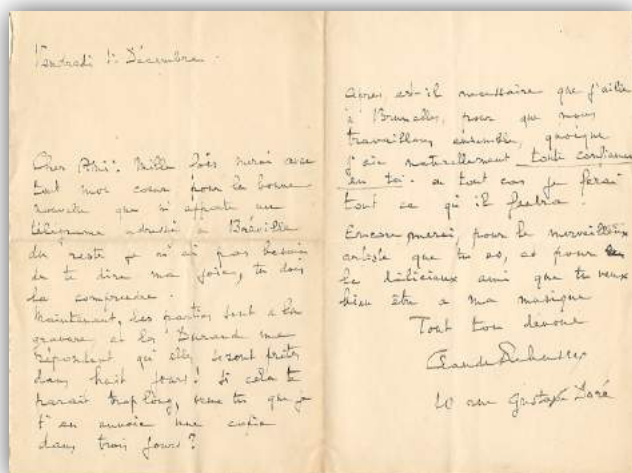 Vendredi 1r Décembre.
Cher Ami: Mille fois merci avec
tout mon coeur pour la bonne
nouvelle que m'apporte un
télégramme adressé à Bréville
du reste je n'ai pas besoin
de te dire ma joie, tu dois
la comprendre.
Maintenant, les parties sont à la
gravure et les Durand me
répondent qu'elles seront prêtes
dans huit jours! Si cela te
parait trop long, veux tu que je
t'en envoie une copie
dans trois jours?
Après est-il nécessaire que j'aille
à Bruxelles, pour que nous
travaillions ensemble, quoique
j'aie naturellement toute confiance
en toi - a tout cas je ferai
tout ce qu'il faudra!
Encore merci, pour le merveilleux
artiste que tu es, et pour
le délicieux ami que tu veux
bien être a ma musique
Tout ton dévoué
Claude Debussy
10 rue Gustave Doré